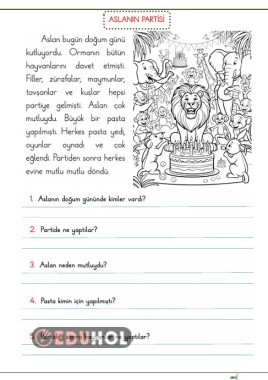 ASLANIN PARTİSİ
Aslan bugün doğum günü
kutluyordu. Ormanın bütün
hayvanlarını davet etmişti.
Filler, zürafalar, maymunlar,
tavşanlar ve kuşlar hepsi
partiye gelmişti. Aslan çok
mutluydu. Büyük bir pasta
yapılmıştı. Herkes pasta yedi,
oyunlar oynadı ve çok
eğlendi. Partiden sonra herkes
evine mutlu mutlu döndü.
1. Aslanın doğum gününde kimler vardı?
2. Partide ne yaptılar?
3. Aslan neden mutluydu?
4. Pasta kimin için yapılmıştı?
sonra ne yaptılar?
EDUHOL